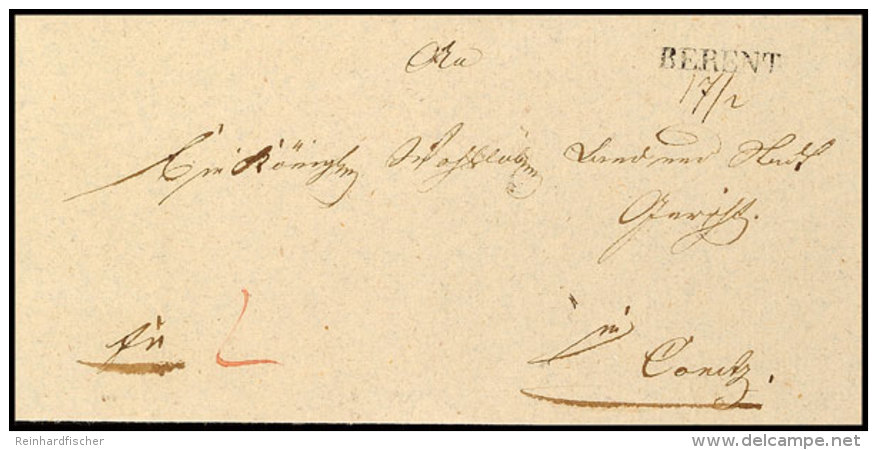 An
BERENT
17/2
Ein Königl. Wohllöbl. Land und Stadt
Gericht.
in
Conitz.
Reinhardfischer
www.delcampe.net